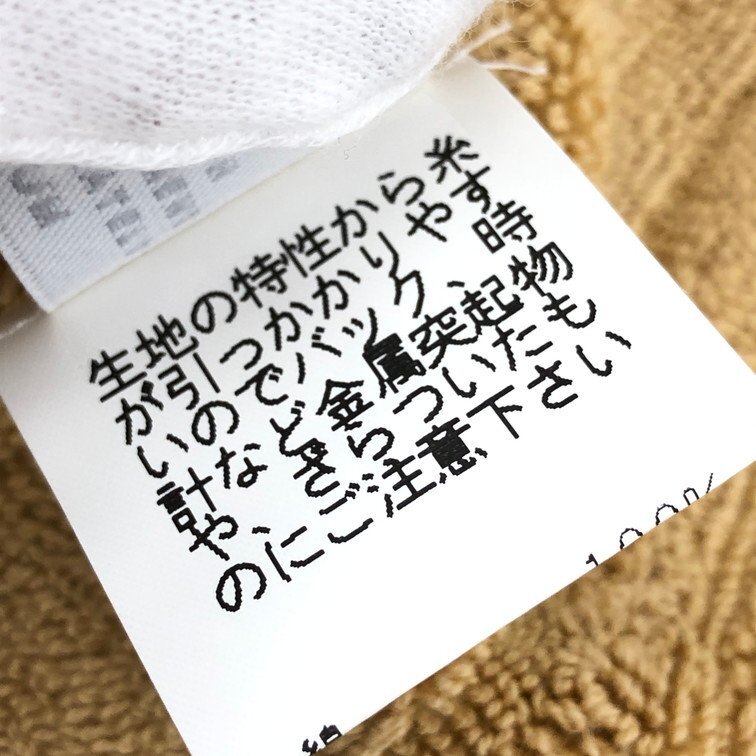 生地の特性から糸
が引っかかりやす
いのでバック、時
計など金属突起物
や、ざらついたも
のにご注意下さい
100%
綿